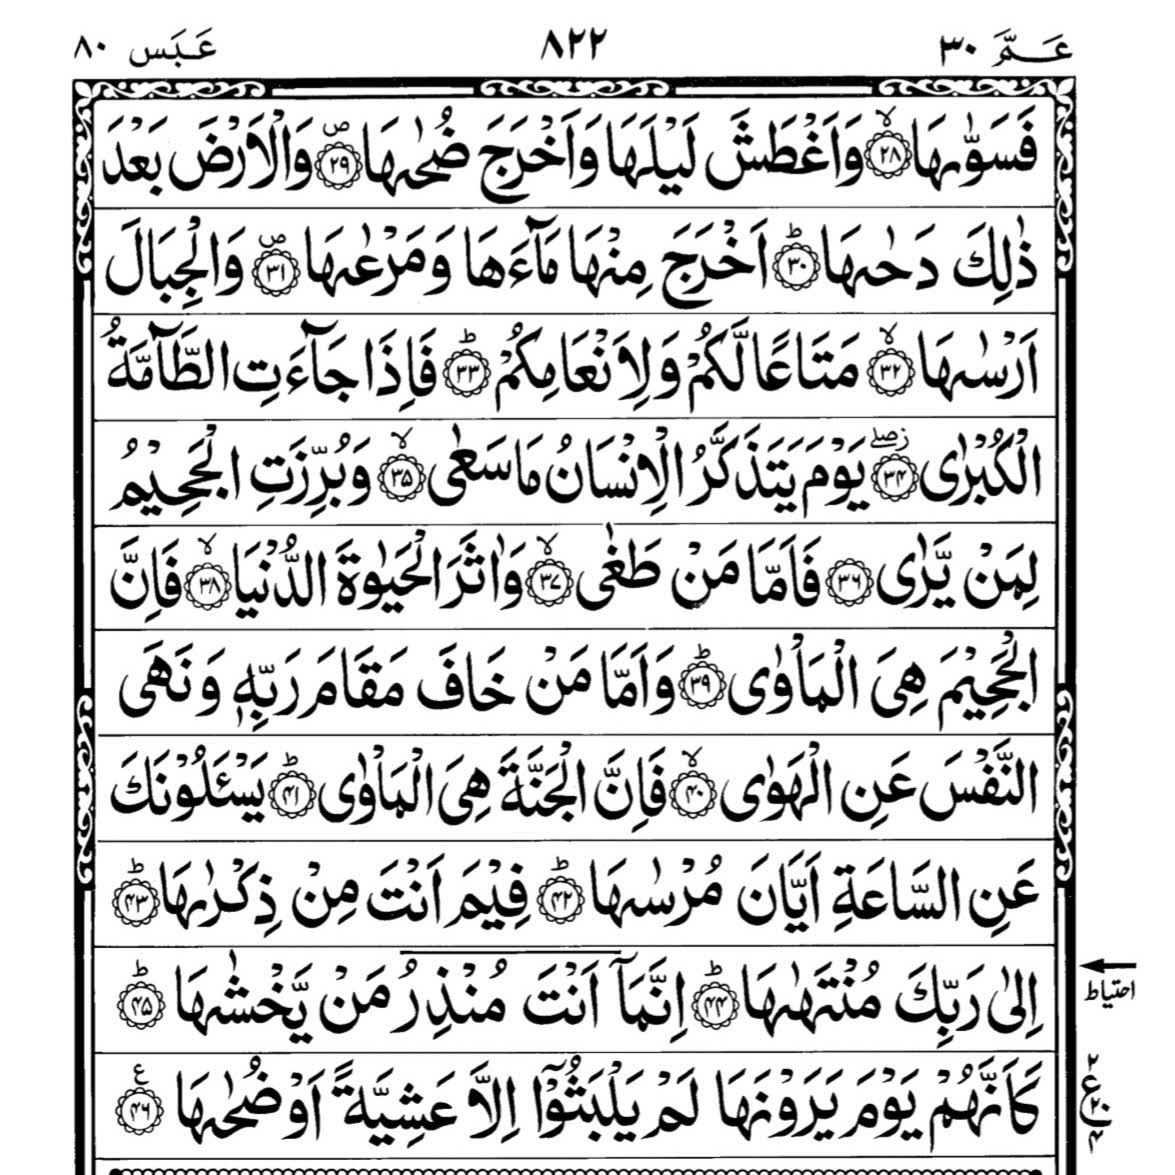 عَمَّ ۳۰ ۸۲۲ عَبَسَ ۸۰
فَسَوّٰىهَا ۙ‏﴿۲۸﴾ وَاَغْطَشَ لَيْلَهَا وَاَخْرَجَ ضُحٰىهَا ۪‏﴿۲۹﴾ وَالْاَرْضَ بَعْدَ
ذٰلِكَ دَحٰىهَا ؕ‏﴿۳۰﴾ اَخْرَجَ مِنْهَا مَآءَهَا وَمَرْعٰىهَا ۪‏﴿۳۱﴾ وَالْجِبَالَ
اَرْسٰىهَا ۙ‏﴿۳۲﴾ مَتَاعًا لَّكُمْ وَلِاَنْعَامِكُمْ ؕ‏﴿۳۳﴾ فَاِذَا جَآءَتِ الطَّآمَّةُ
الْكُبْرٰى ۖ ز‏﴿۳۴﴾ يَوْمَ يَتَذَكَّرُ الْاِنْسَانُ مَا سَعٰى ۙ‏﴿۳۵﴾ وَبُرِّزَتِ الْجَحِيْمُ
لِمَنْ يَّرٰى ﴿۳۶﴾ فَاَمَّا مَنْ طَغٰى ۙ‏﴿۳۷﴾ وَاٰثَرَ الْحَيٰوةَ الدُّنْيَا ۙ‏﴿۳۸﴾ فَاِنَّ
الْجَحِيْمَ هِىَ الْمَاْوٰى ؕ‏﴿۳۹﴾ وَاَمَّا مَنْ خَافَ مَقَامَ رَبِّهٖ وَنَهَى
النَّفْسَ عَنِ الْهَوٰى ۙ‏﴿۴۰﴾ فَاِنَّ الْجَنَّةَ هِىَ الْمَاْوٰى ؕ‏﴿۴۱﴾ يَسْئَلُوْنَكَ
عَنِ السَّاعَةِ اَيَّانَ مُرْسٰىهَا ؕ‏﴿۴۲﴾ فِيْمَ اَنْتَ مِنْ ذِكْرٰىهَا ؕ‏﴿۴۳﴾
اِلٰى رَبِّكَ مُنْتَهٰىهَا ؕ‏﴿۴۴﴾ اِنَّمَآ اَنْتَ مُنْذِرُ مَنْ يَّخْشٰىهَا ؕ‏﴿۴۵﴾
احتیاط
كَاَنَّهُمْ يَوْمَ يَرَوْنَهَا لَمْ يَلْبَثُوْۤا اِلَّا عَشِيَّةً اَوْ ضُحٰىهَا ﴿۴۶﴾ ع
۲ ع ۲۰ ۴